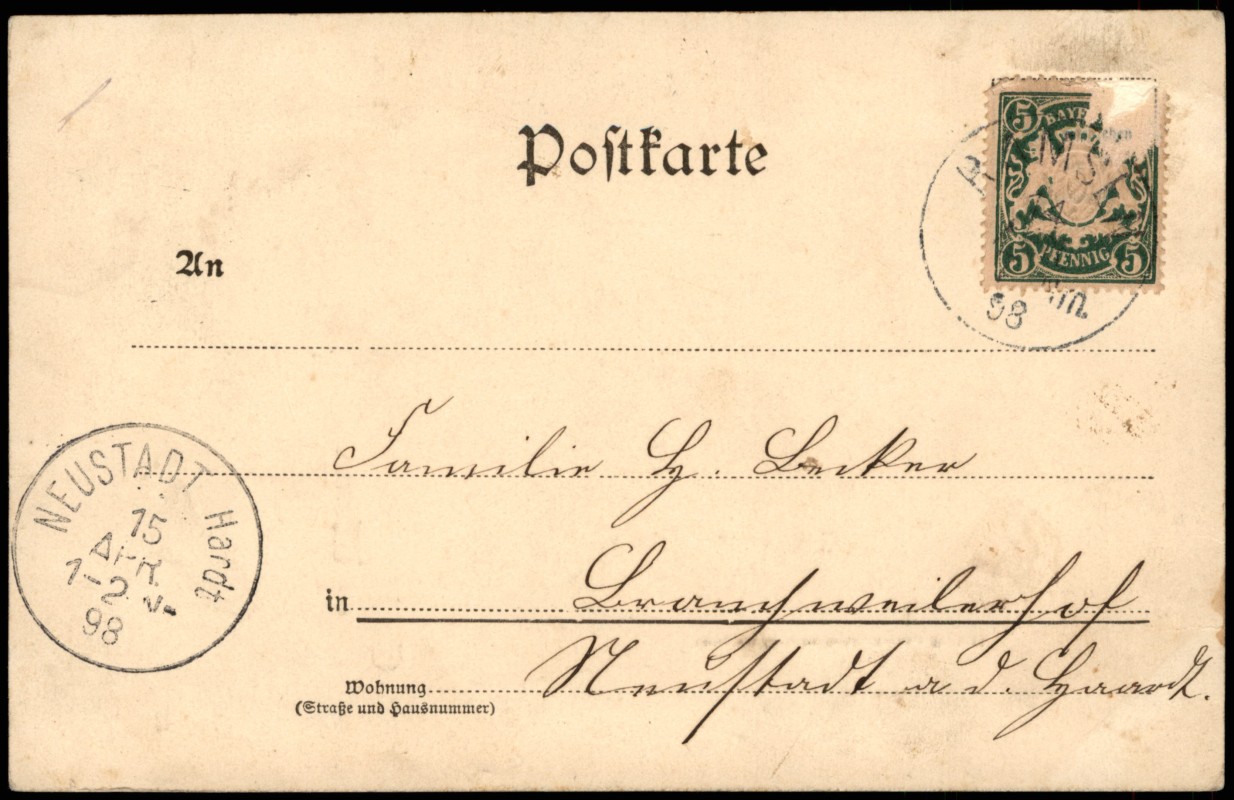 Postkarte
5
BAYER
PFENNIG
5 5
98
An
Familie H. Becker
NEUSTADT Hardt
15
APR
1-2 N.
98
in Branchweilerhof
Neustadt a d. Haardt.
Wohnung
(Straße und Hausnummer)